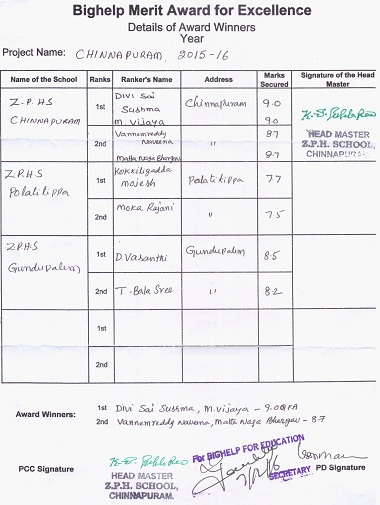 Bighelp Merit Award for Excellence
Details of Award Winners
Year
Project Name: CHINNAPURAM, 2015-16
Name of the School Ranks Ranker's Name Address Marks Secured Signature of the Head Master
Z.P.HS CHINNAPURAM
1st DIVI Sai Sushma Chinnapuram 9.0
m. vijaya 9.0
2nd Vannemreddy Naveena 8.7
Matta Naga Bhargav 8.7
HEAD MASTER
Z.P.H. SCHOOL,
CHINNAPURAM.
Z.P.H.S Polatitippa
1st Kokkiligadda majesh Polatitippa 77
2nd Moka Rajani " 75
Z.P.H.S Gundupalem
1st D. Vasanthi Gundupalem 8.5
2nd T. Bala Sree " 8.2
1st
2nd
Award Winners: 1st Divi Sai Sushma, M. Vijaya - 9.0 GPA
2nd Vannemreddy Naveena, Matta Naga Bhargav - 8.7
For BIGHELP FOR EDUCATION
PCC Signature
SECRETARY PD Signature
HEAD MASTER
Z.P.H. SCHOOL,
CHINNAPURAM.